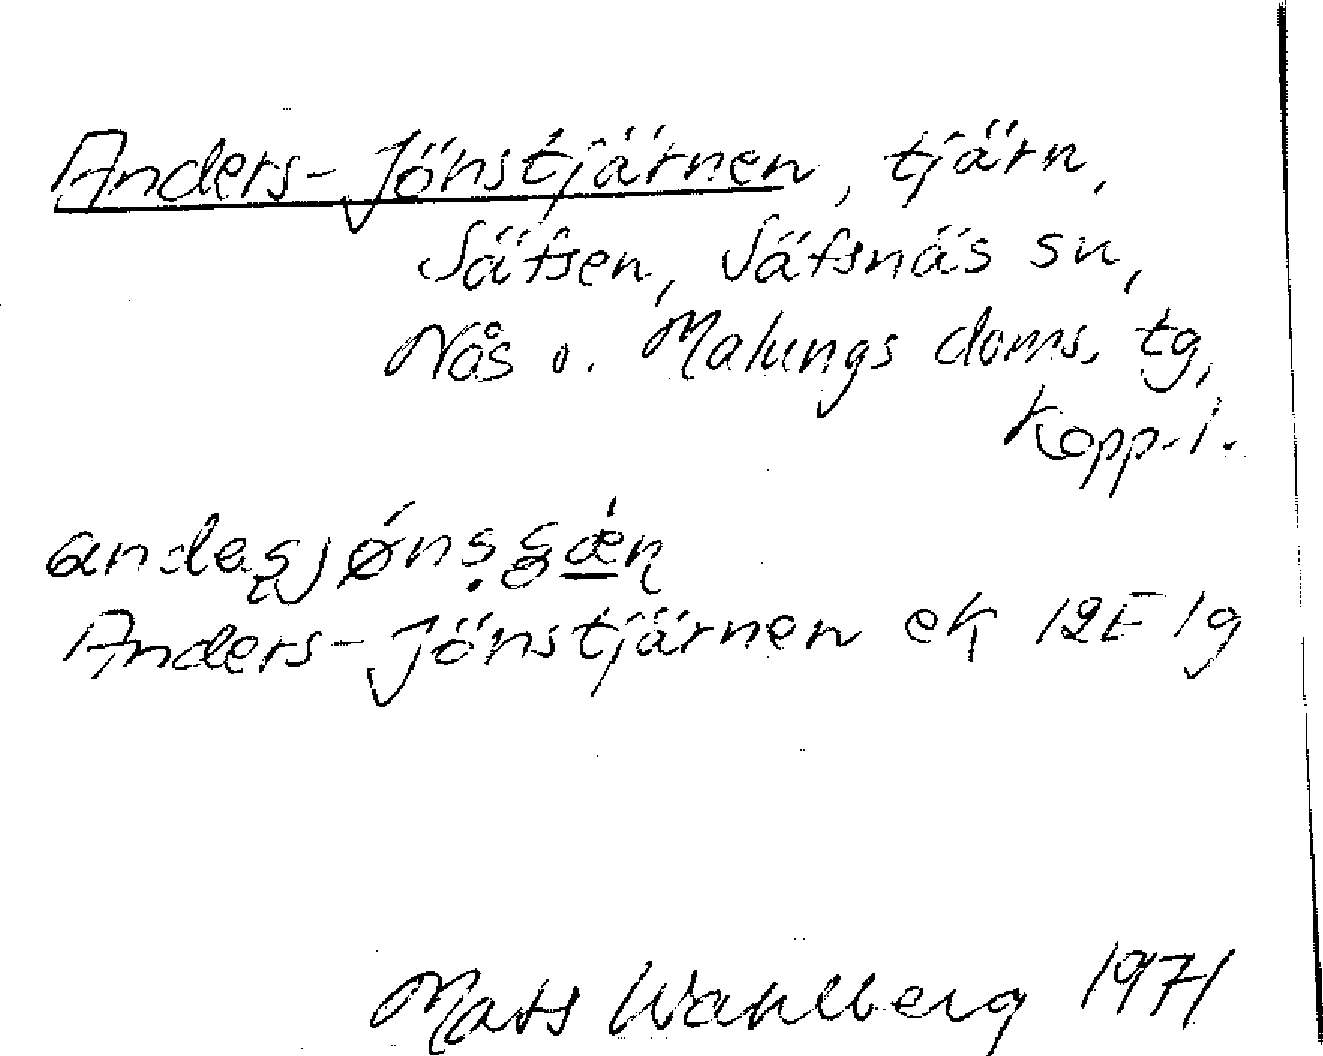 Anders-Jönstjärnen, tjärn,
Säfsen, Säfsnäs sn,
Nås o. Malungs doms. tg,
Kopp. l.
Anders-Jönstjärnen ek 12E 1g
Mats Wahlberg 1971